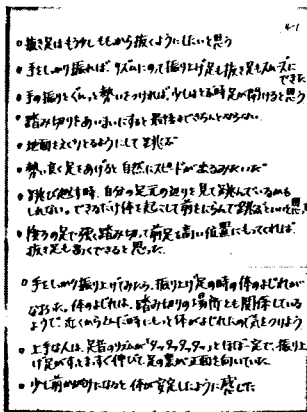 4-1
○ 抜き足はもう少しももから抜くようにしたいと思う
○ 手をしっかり振れば、リズムにのって振り上げ足も抜き足もスムーズに
できた
○ 手の振りをぐんっと勢いをつければ、少しはとぶ時足が開けると思う
○ 踏み切りをあいまいにすると最後まできちんととべない。
○ 地面をえぐりとるようにして跳ぶ
○ 勢い良く足をあげると自然にスピードが出るみたいだ
○ 跳び越す時、自分の足元の辺りを見て跳んでいるかも
しれない。できるだけ体を起こして前をにらんで跳ぶといいと思う
○ 後ろの足で強く踏み切って前足を高い位置にもってくれば、
抜き足も高くできると思った。
○ 手をしっかり振り上げてみたら、振り上げ足の時の体のよじれが
なおった。体のよじれは、踏み切りの場所とも関係している
ようで、近くからとんだ時にもっと体がよじれたので気をつけよう
○ 上手な人は、足音のリズムが「タッタッタッタッ」とほぼ一定で、振り上
げ足がまっすぐ伸びて、足の裏が正面を向いていた。
○ 少し前かがみになると体が安定したように感じた